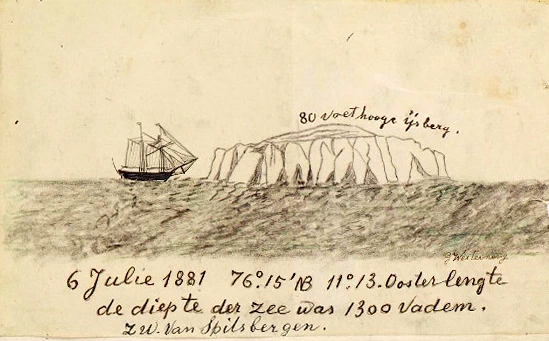 80 voet hooge ijsberg.
6 Julie 1881 76º.15'NB 11º.13. Ooster lengte
de diepte der zee was 1300 vadem.
ZW. van Spitsbergen.